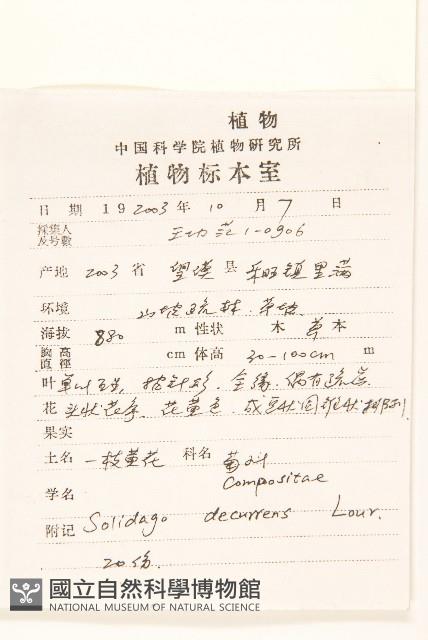 植物
中国科学院植物研究所
植物标本室
日期 19 2003 年 10 月 7 日
採集人及号數 1-0906
产地 2003 省 望谟 县
环境 山坡疏林.草坡
海拔 880 m 性状 木 草本
胸高直徑 cm 体高 30-100cm m
叶 单叶互生 披针形. 全缘. 偶有疏齿
花 头状花序. 花黄色. 成总状圆锥状排列
果实
土名 一枝黄花 科名 菊科
Compositae
学名
附记 Solidago decurrens Lour.
20份.
國立自然科學博物館
NATIONAL MUSEUM OF NATURAL SCIENCE